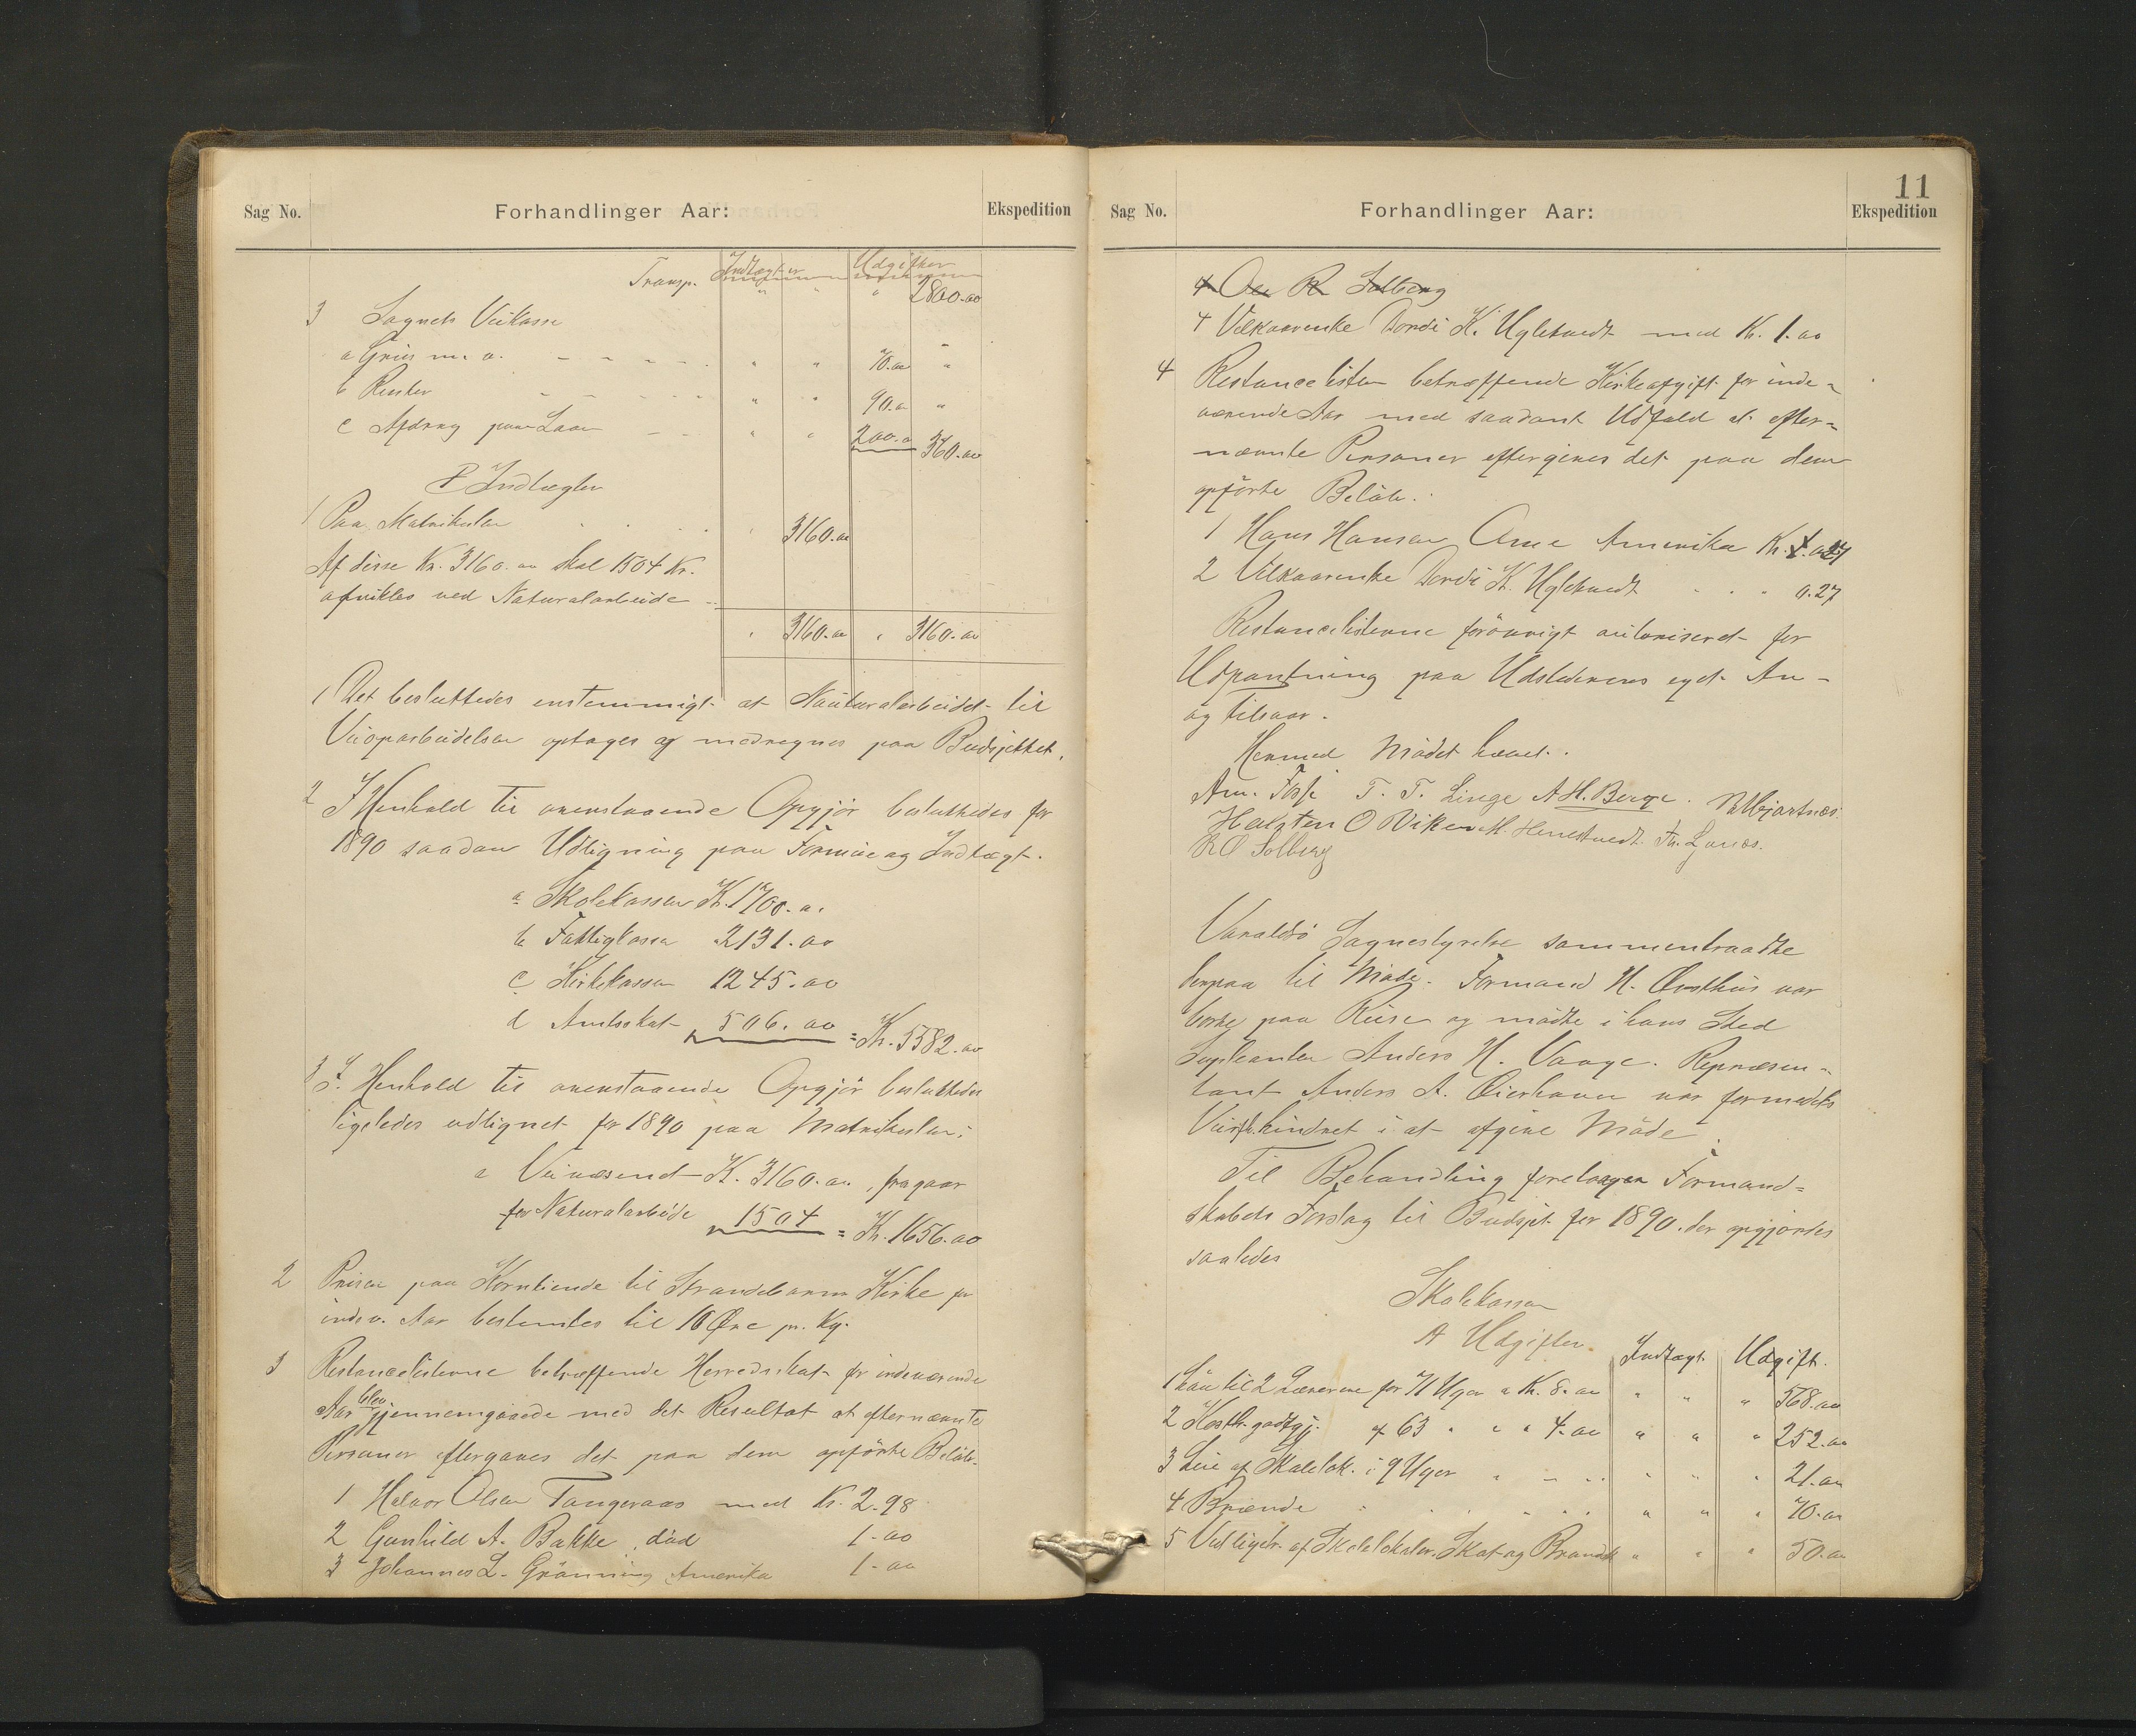 Sag No.
Forhandlinger Aar:
Ekspedition
Indtægter Udgifter
Transp. " " " 2800.00
3 Sognets Veikasse
a Grus m. v. - - - - " " 70.00 "
b Renter - - - - " " 90.00 "
c Afdrag paa Laan - - " " 200.00 360.00
B Indtægter
1 Paa Matrikulen 3160.00
Af disse Kr. 3160.00 skal 1504 Kr.
afvikles ved Naturalarbeide
" 3160.00 " 3160.00
1 Det besluttedes enstemmigt at Naturalarbeidet til
Veioparbeidelsen optages og medregnes paa Budsjettet.
2 I Henhold til ovenstaaende Opgjör besluttedes for
1890 saadan Udligning paa Formue og Indtægt.
a Skolekassen Kr. 1700.00
b Fattigkassen 2131.00
c Kirkekassen 1245.00
d Amtsskat 506.00 = Kr. 5582.00
3 I Henhold til ovenstaaende Opgjör besluttedes
ligeledes udlignet for 1890 paa Matrikulen:
a Veivæsenet Kr. 3160.00, fragaar
for Naturalarbeide 1504 = Kr. 1656.00
2 Prisen paa Korntiende til Strandebarm Kirke for
indev. Aar bestemtes til 10 Øre pr. Kg.
3 Restancelisterne betræffende Herredsskat for indeværende
Aar blev gjennemgaaede med det Resultat at efternævnte
Personer eftergaves det paa dem opförte Belöb.
1 Halvor Olsen Tangeraas med Kr. 2.98
2 Gunhild A. Bakke, död 1.00
3 Johannes L. Grönning Amerika 1.00
11
Sag No.
Forhandlinger Aar:
Ekspedition
4 Ole R. Solberg
4 Vilkaarenke Dordi K. Ugletvedt med Kr. 1.00
4 Restancelisten betræffende Kirkeafgift for inde-
værende Aar med saadant Udfald at efter-
nævnte Personer eftergives det paa dem
opförte Belöb.
1 Hans Hansen Amerika Kr. 27
2 Vilkaarenke Dordi K. Ugletvedt . . . 0.27
Restancelisterne forövrigt autoriseret for
Udpantning paa Udstederens eget An-
og tilsvar.
Hermed Mödet hævet.
Am. Fosse T. T. Linge A H. Berge.
Halsten O Viken Th. Lønes.
R O Solberg
Varaldsö Sognestyrelse sammentraadte
derpaa til Möde. Formand H. Øvsthus var
borte paa Reise og mödte i hans Sted
Supleanten Anders H. Vaage. Repræsen-
tant Anders A. Øierhavn var formedels
Veirf. hindret i at afgive Möde.
Til Behandling foretoges Formand-
skabets Forslag til Budsjet for 1890. der opgjordes
saaledes
Skolekassen
A Udgifter. Indtægt. Udgift.
1 Lön til 2 Lærerene for 71 Uger a Kr. 8.00 " " " 568.00
2 Kosth.godtgj. af 63 " " " 4.00 " " " 252.00
3 Leie af Skolelok. i 9 Uger " - - - " " " 21.00
4 Brænde " " " 70.00
5 Vedligeh. af Skolelokaler. Skat og Brandk " " " 50.00